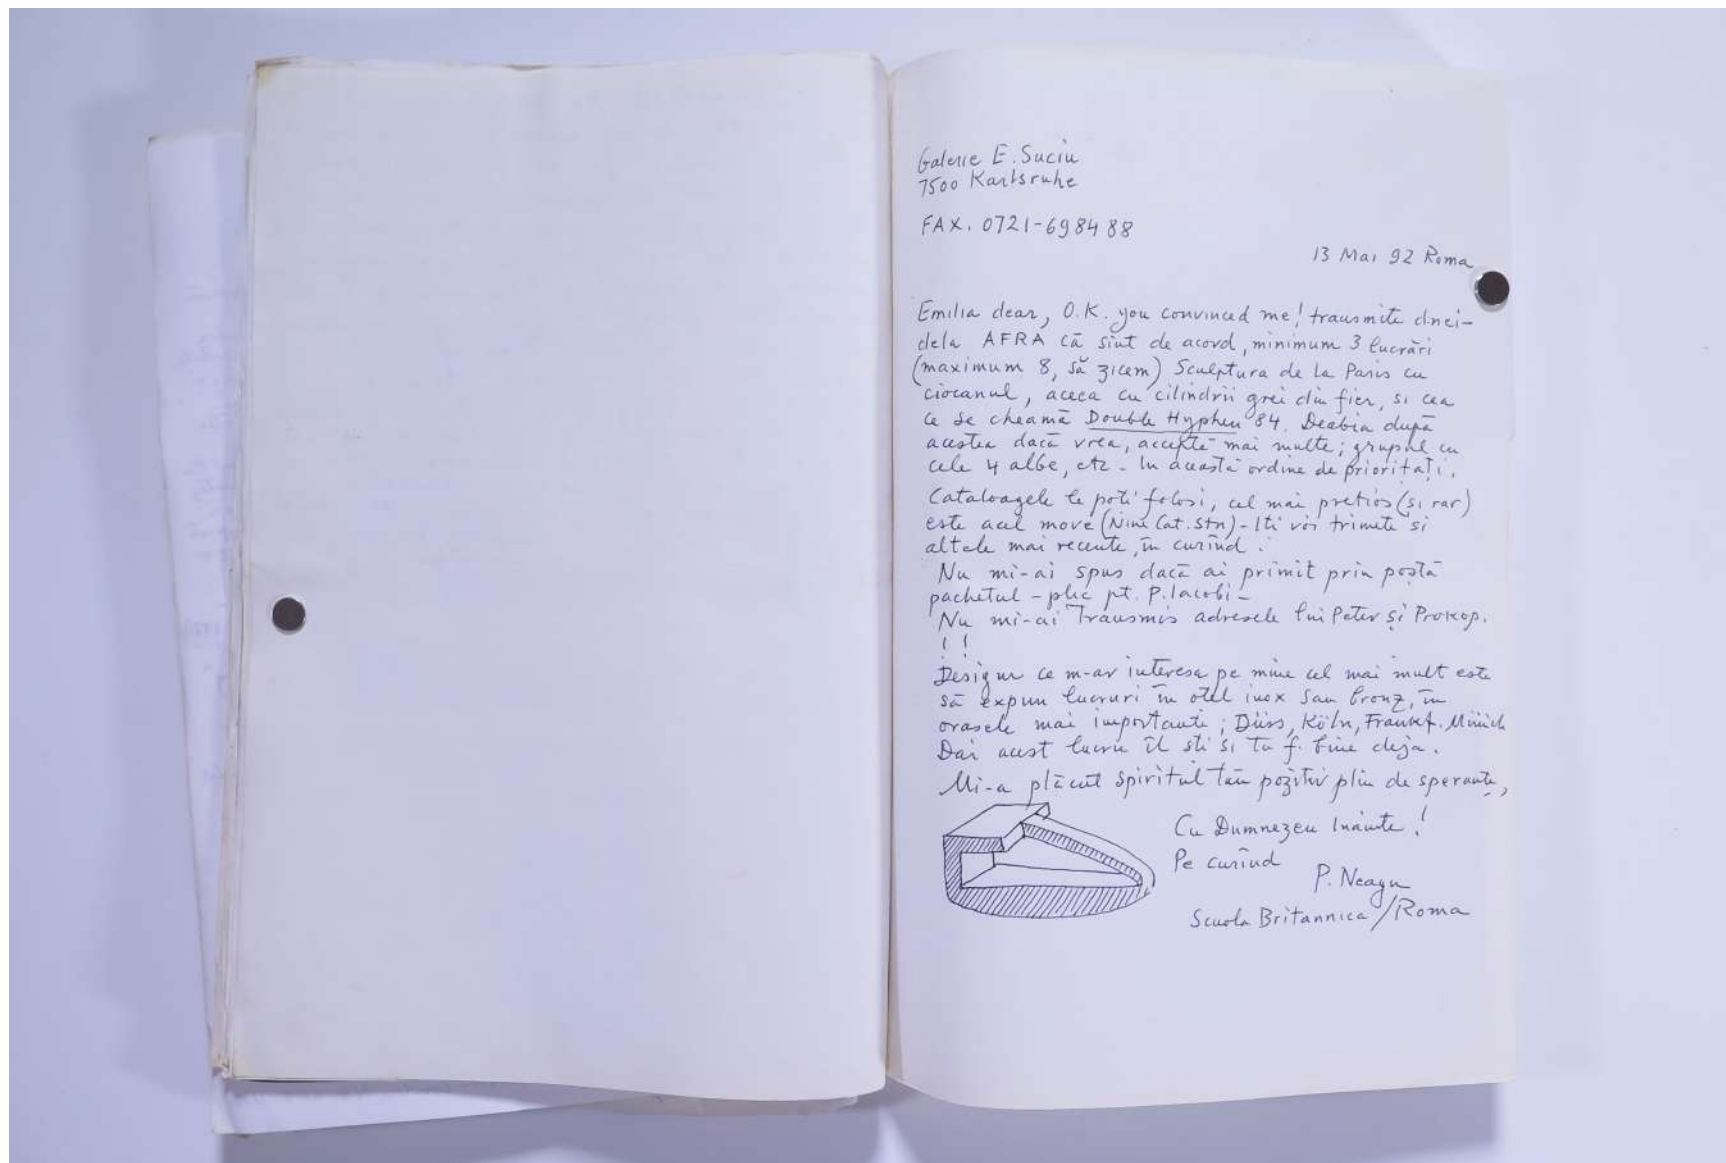 Galerie E. Suciu
7500 Karlsruhe
FAX. 0721-698488
13 Mai 92 Roma
Emilia dear, O.K. you convinced me! transmite d.nei-
dela AFRA că sînt de acord, minimum 3 lucrări
(maximum 8, să zicem) Sculptura de la Paris cu
ciocanul, aceea cu cilindrii grei din fier, si cea
ce se cheamă Double Hyphen 84. Deabia după
acestea dacă vrea, acceptă mai multe; grupul cu
cele 4 albe, etc - In această ordine de priorități.
Cataloagele le poti folosi, cel mai pretios (si rar)
este acel move (Nine Cat. Stn) - Iti voi trimite si
altele mai recente, în curînd.
Nu mi-ai spus dacă ai primit prin poștă
pachetul - plic pt. P. Iacobi -
Nu mi-ai Transmis adresele lui Peter și Prokop.
! !
Desigur ce m-ar interesa pe mine cel mai mult este
să expun lucruri în otel inox sau bronz, în
orasele mai importante; Düss, Köln, Frankf. Münich
Dar acest lucru îl sti si tu f. bine deja.
Mi-a plăcut spiritul tău pozitiv plin de speranțe,
Cu Dumnezeu Inainte!
Pe curînd
P. Neagu
Scuola Britannica/Roma